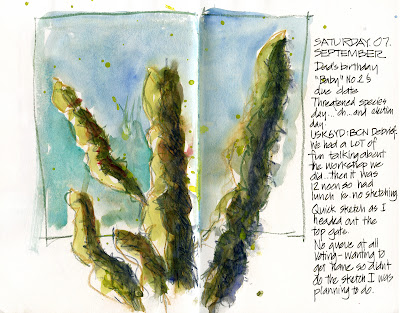 SATURDAY 07.
SEPTEMBER
Dad's birthday
"Baby" No.2's
due date
Threatened species
day... "oh... and election
day!
USKSYD: BCN Debrief
We had a LOT of
fun talking about
the workshop we
did... then it was
12 noon so had
lunch & no sketching
Quick sketch as I
headed out the
top gate.
No queue at all
voting - wanting to
get home so didn't
do the sketch I was
planning to do.